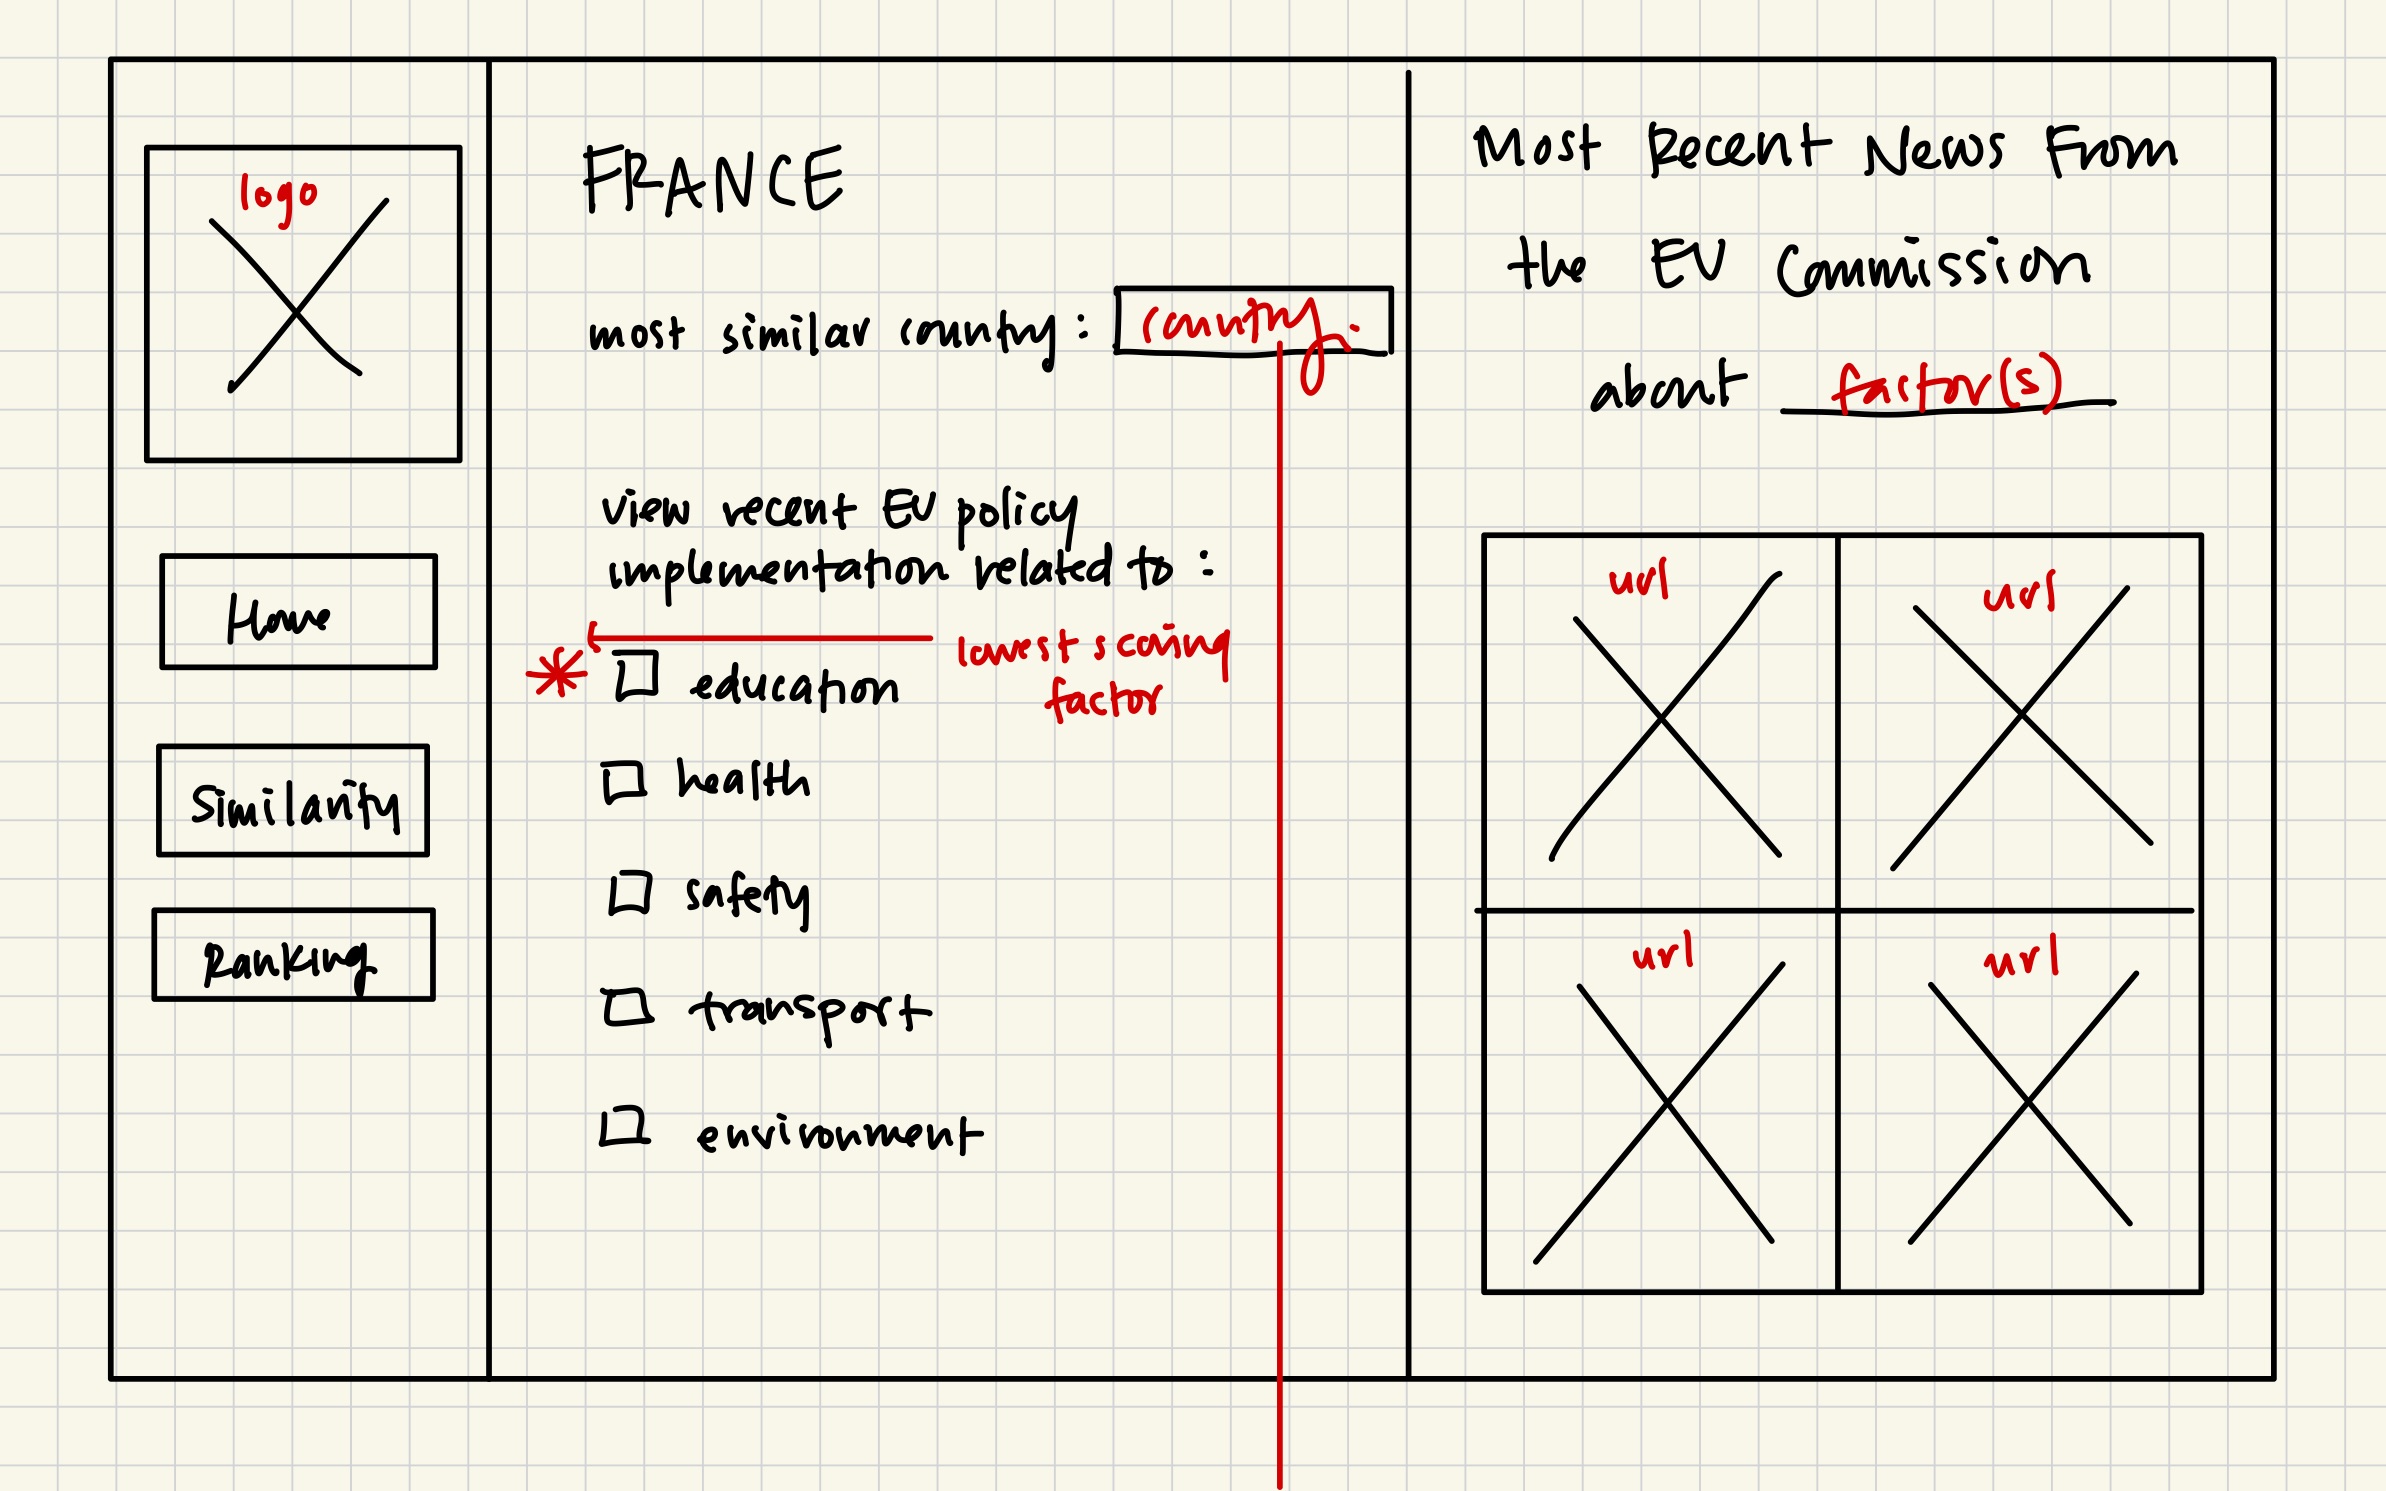 logo
Home
Similarity
Ranking
FRANCE
most similar country: country
view recent EU policy
implementation related to:
lowest scoring
factor
* education
health
safety
transport
environment
Most Recent News From
the EU Commission
about factor(s)
url url
url url